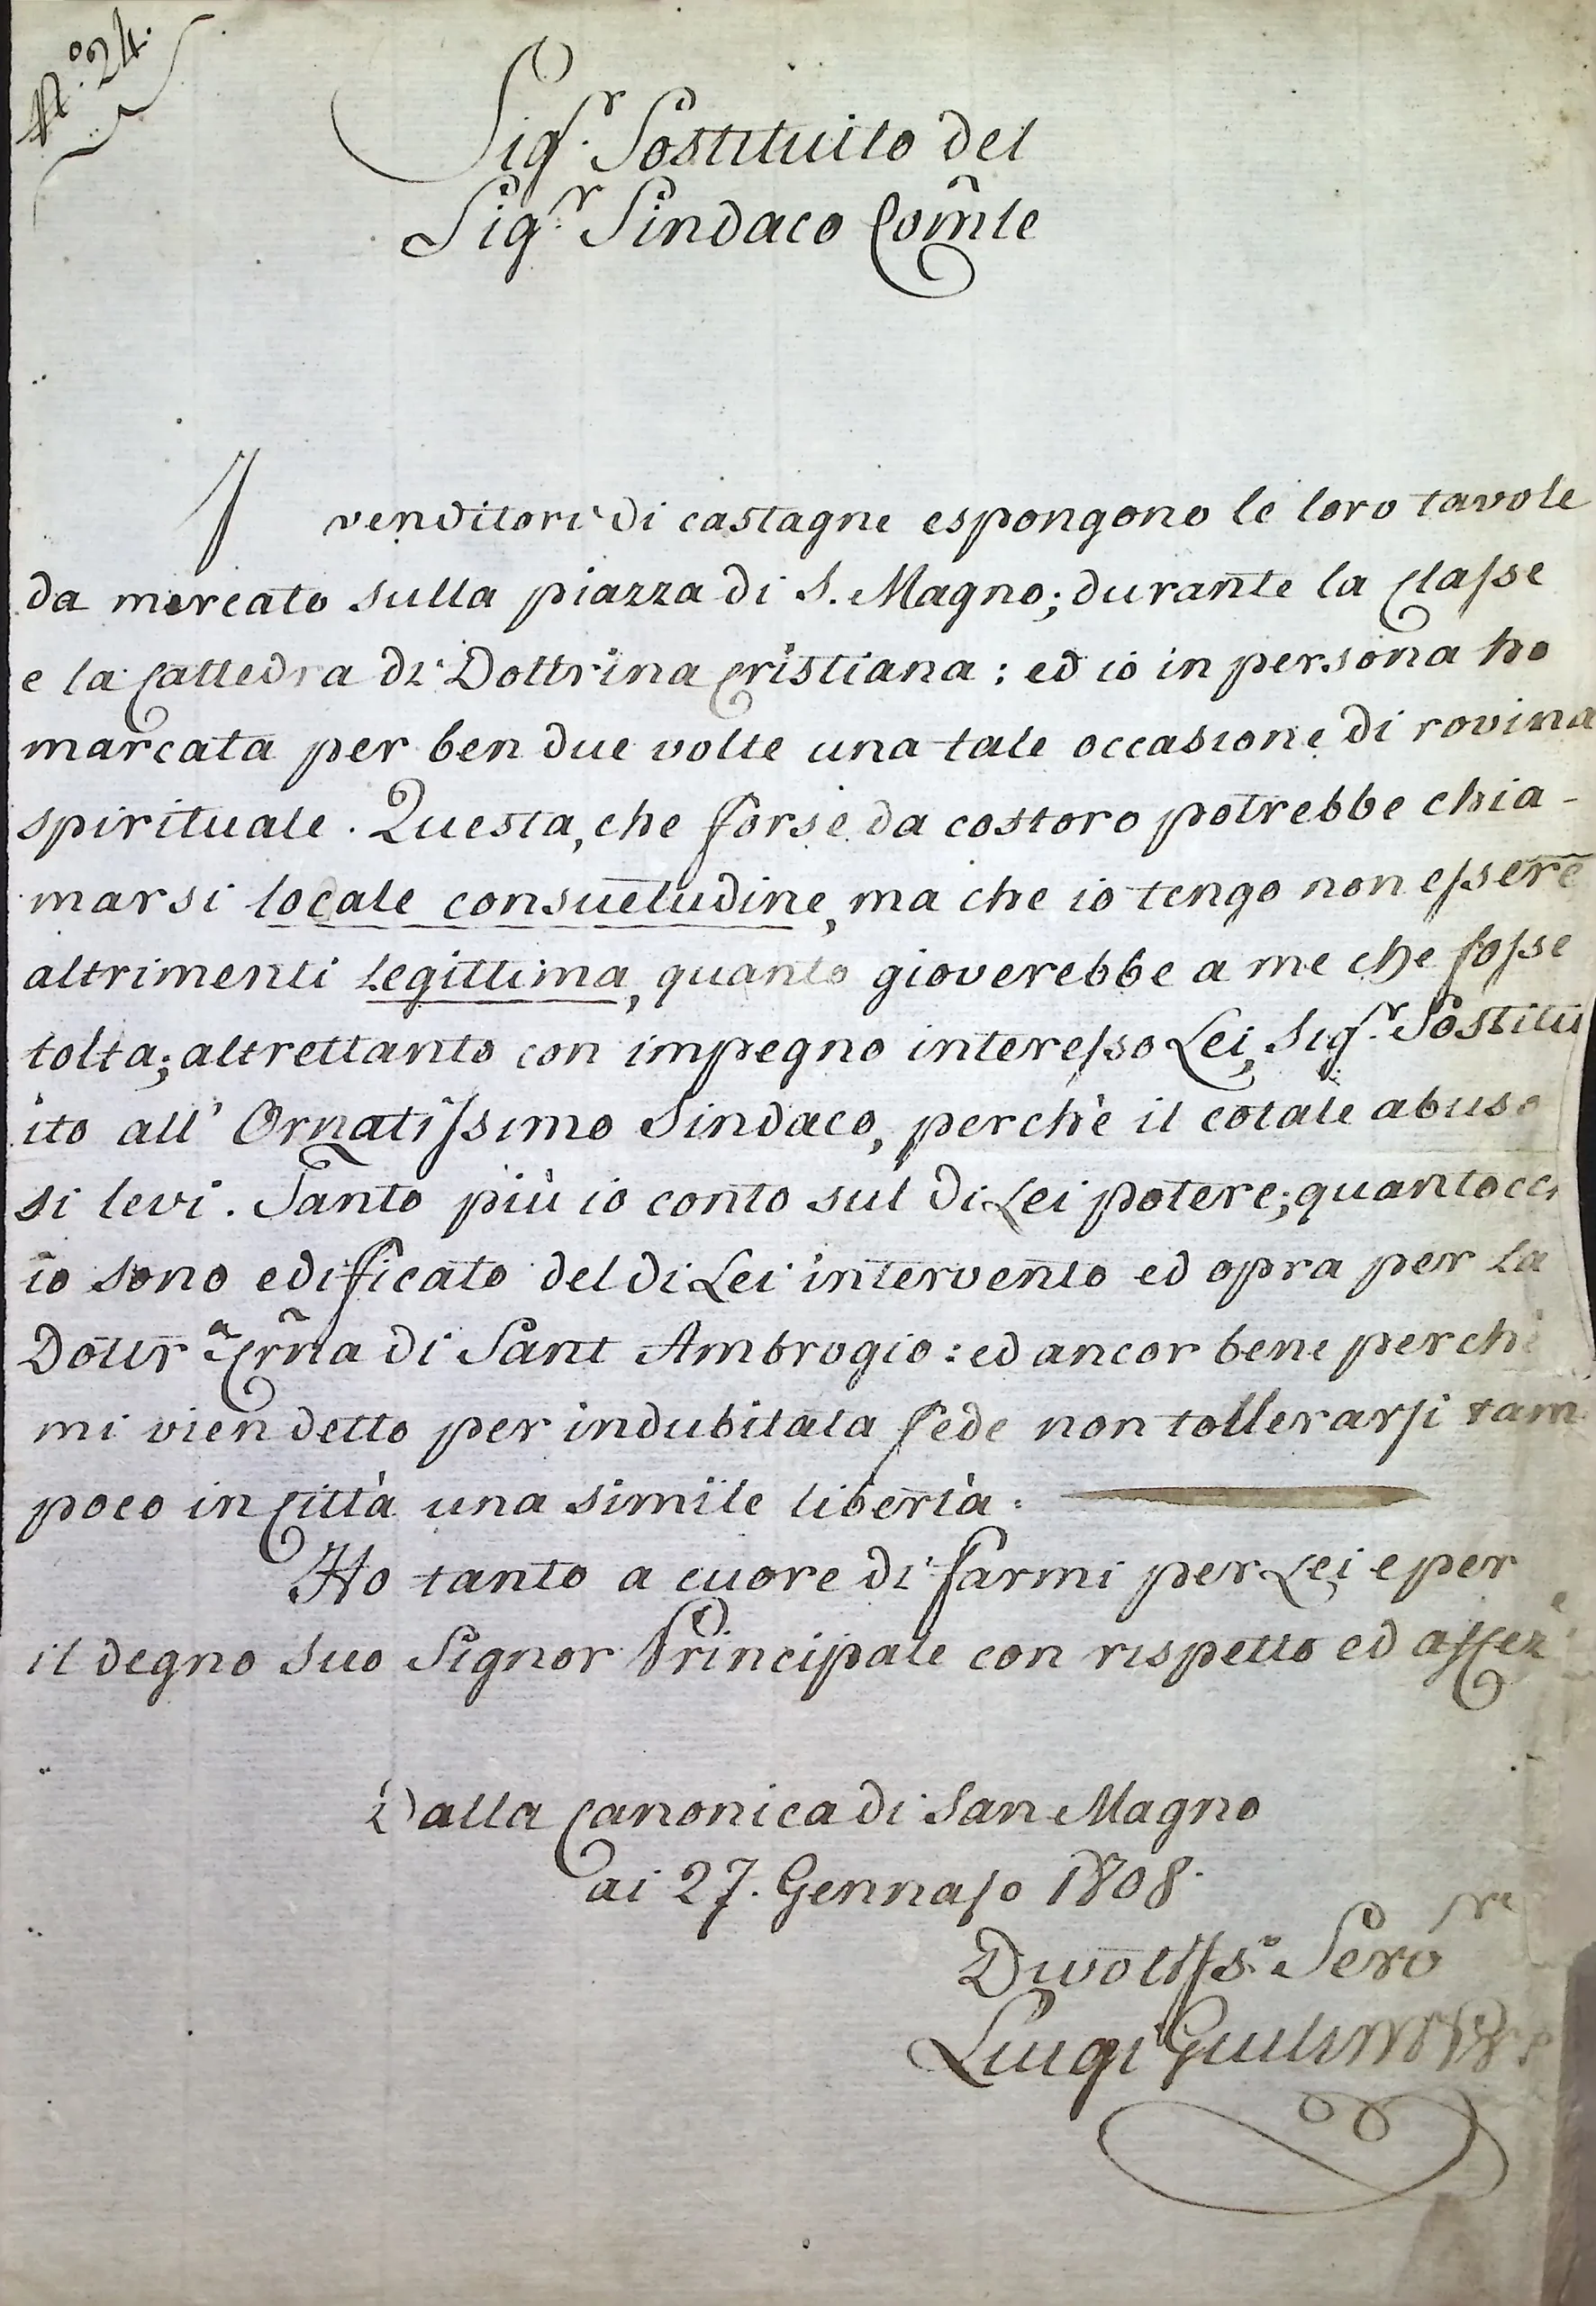 N.° 24.
Sig.r Sostituito del
Sig.r Sindaco Com̃le
I venditori di castagne espongono le loro tavole
da mercato sulla piazza di S. Magno; durante la Classe
e la Cattedra di Dottrina Cristiana: ed io in persona ho
marcata per ben due volte una tale occasione di rovina
spirituale. Questa, che forse da costoro potrebbe chia-
marsi locale consuetudine, ma che io tengo non essere
altrimenti legittima, quanto gioverebbe a me che fosse
tolta; altrettanto con impegno interesso Lei, Sig.r Sostitu
ito all' Ornatissimo Sindaco, perchè il cotale abuso
si levi. Tanto più io conto sul di Lei potere; quantocc
io sono edificato del di Lei intervento ed opra per la
Dottr.a Crñna di Sant Ambrogio: ed ancor bene perchè
mi vien detto per indubitata fede non tollerarsi tam
poco in Città una simile libertà.
Ho tanto a cuore di farmi per Lei e per
il degno suo Signor Principale con rispetto ed affez
Dalla Canonica di San Magno
ai 27. Gennajo 1808.
Divotiss.o Servo
Luigi